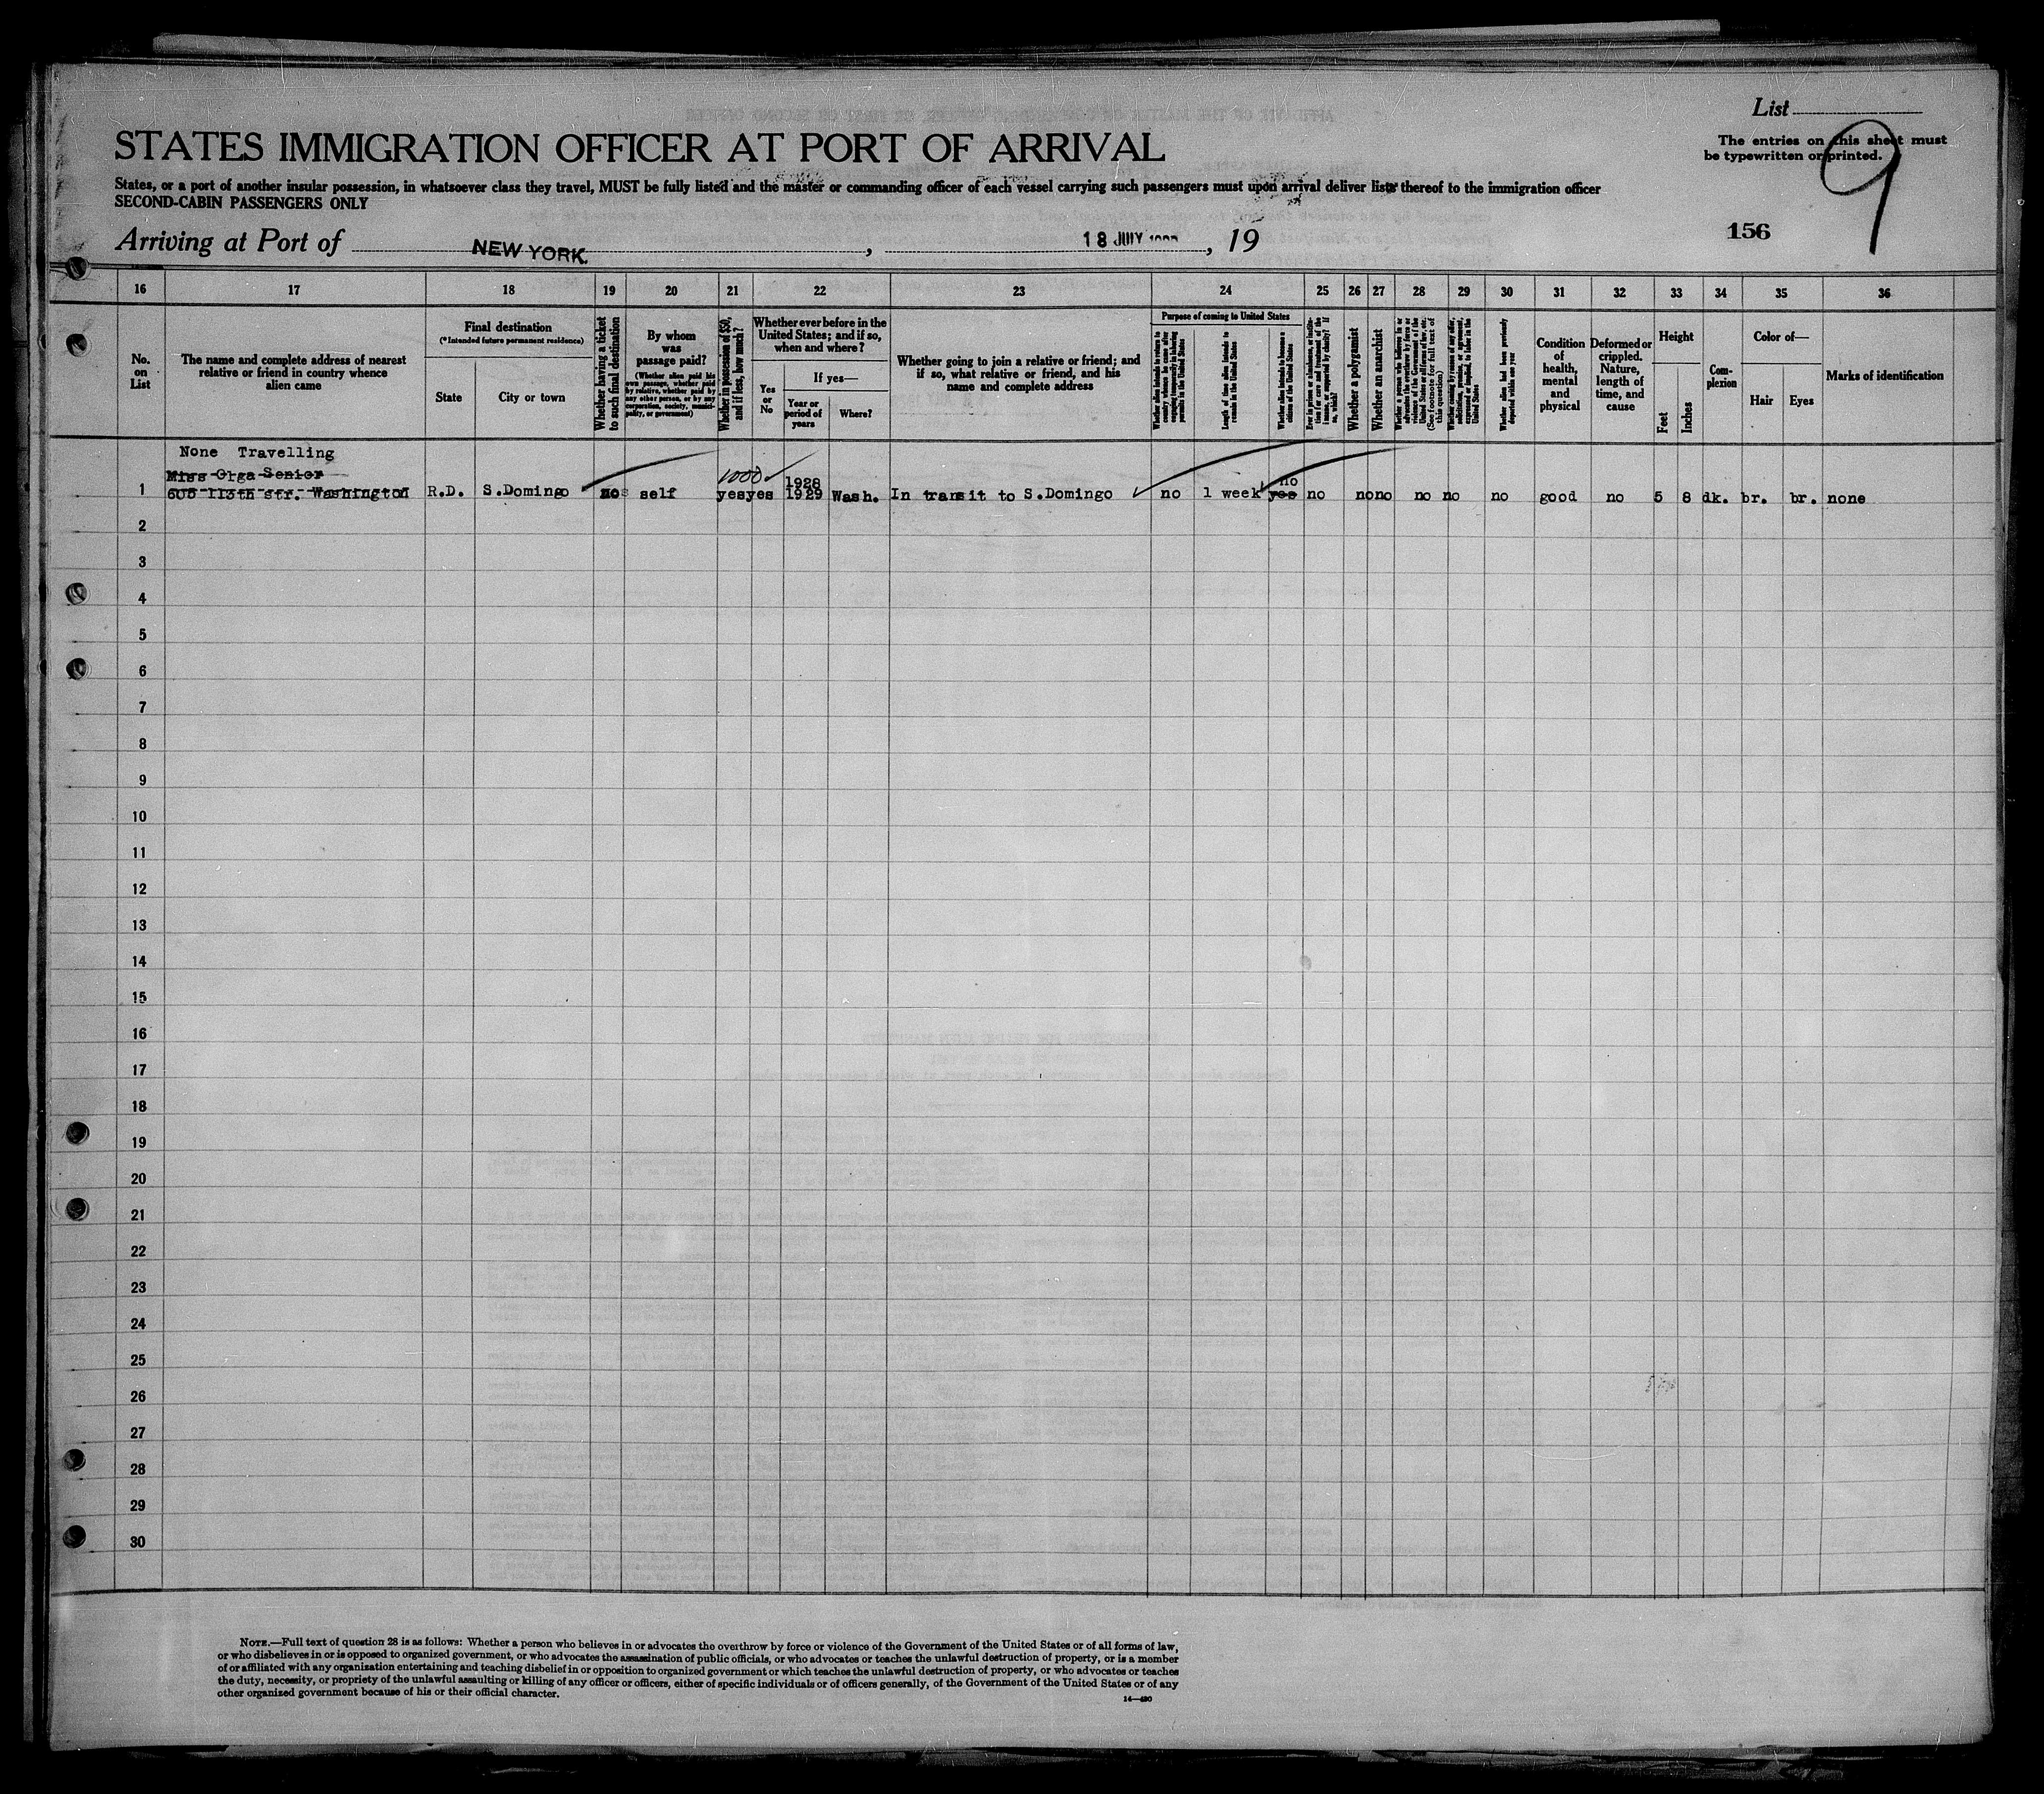 List
STATES IMMIGRATION OFFICER AT PORT OF ARRIVAL
The entries on this sheet must
be typewritten or printed.
9
States, or a port of another insular possession, in whatsoever class they travel, MUST be fully listed and the master or commanding officer of each vessel carrying such passengers must upon arrival deliver lists thereof to the immigration officer
SECOND-CABIN PASSENGERS ONLY
Arriving at Port of NEW YORK. , 18 JULY , 19
156
16 17 18 19 20 21 22 23 24 25 26 27 28 29 30 31 32 33 34 35 36
No. on List
The name and complete address of nearest relative or friend in country whence alien came
Final destination
(*Intended future permanent residence)
State
City or town
Whether having a ticket to such final destination
By whom was passage paid?
(Whether alien paid his own passage, whether paid by relative, whether paid by any other person, or by any corporation, society, municipality, or government)
Whether in possession of $50, and if less, how much?
Whether ever before in the United States; and if so, when and where?
Yes or No
If yes—
Year or period of years
Where?
Whether going to join a relative or friend; and if so, what relative or friend, and his name and complete address
Purpose of coming to United States
Whether alien intends to return to country whence he came after engaging temporarily in laboring pursuits in the United States
Length of time alien intends to remain in the United States
Whether alien intends to become a citizen of the United States
Ever in prison or almshouse, or institution for care and treatment of the insane, or supported by charity? If so, which?
Whether a polygamist
Whether an anarchist
Whether a person who believes in or advocates the overthrow by force or violence of the Government of the United States or all forms of law, etc. (See footnote for full text of this question)
Whether coming by reason of any offer, solicitation, promise, or agreement, expressed or implied, to labor in the United States
Whether alien had been previously deported within one year
Condition of health, mental and physical
Deformed or crippled. Nature, length of time, and cause
Height
Feet
Inches
Complexion
Color of—
Hair
Eyes
Marks of identification
None Travelling
Miss Olga Senior
1000 1928 no
1 605 113th str. Washington R.D. S.Domingo no self yes yes 1929 Wash. In transit to S.Domingo no 1 week yes no no no no no no good no 5 8 dk. br. br. none
2
3
4
5
6
7
8
9
10
11
12
13
14
15
16
17
18
19
20
21
22
23
24
25
26
27
28
29
30
NOTE.—Full text of question 28 is as follows: Whether a person who believes in or advocates the overthrow by force or violence of the Government of the United States or of all forms of law,
or who disbelieves in or is opposed to organized government, or who advocates the assassination of public officials, or who advocates or teaches the unlawful destruction of property, or is a member
of or affiliated with any organization entertaining and teaching disbelief in or opposition to organized government or which teaches the unlawful destruction of property, or who advocates or teaches
the duty, necessity, or propriety of the unlawful assaulting or killing of any officer or officers, either of specific individuals or of officers generally, of the Government of the United States or of any
other organized government because of his or their official character.
14—430